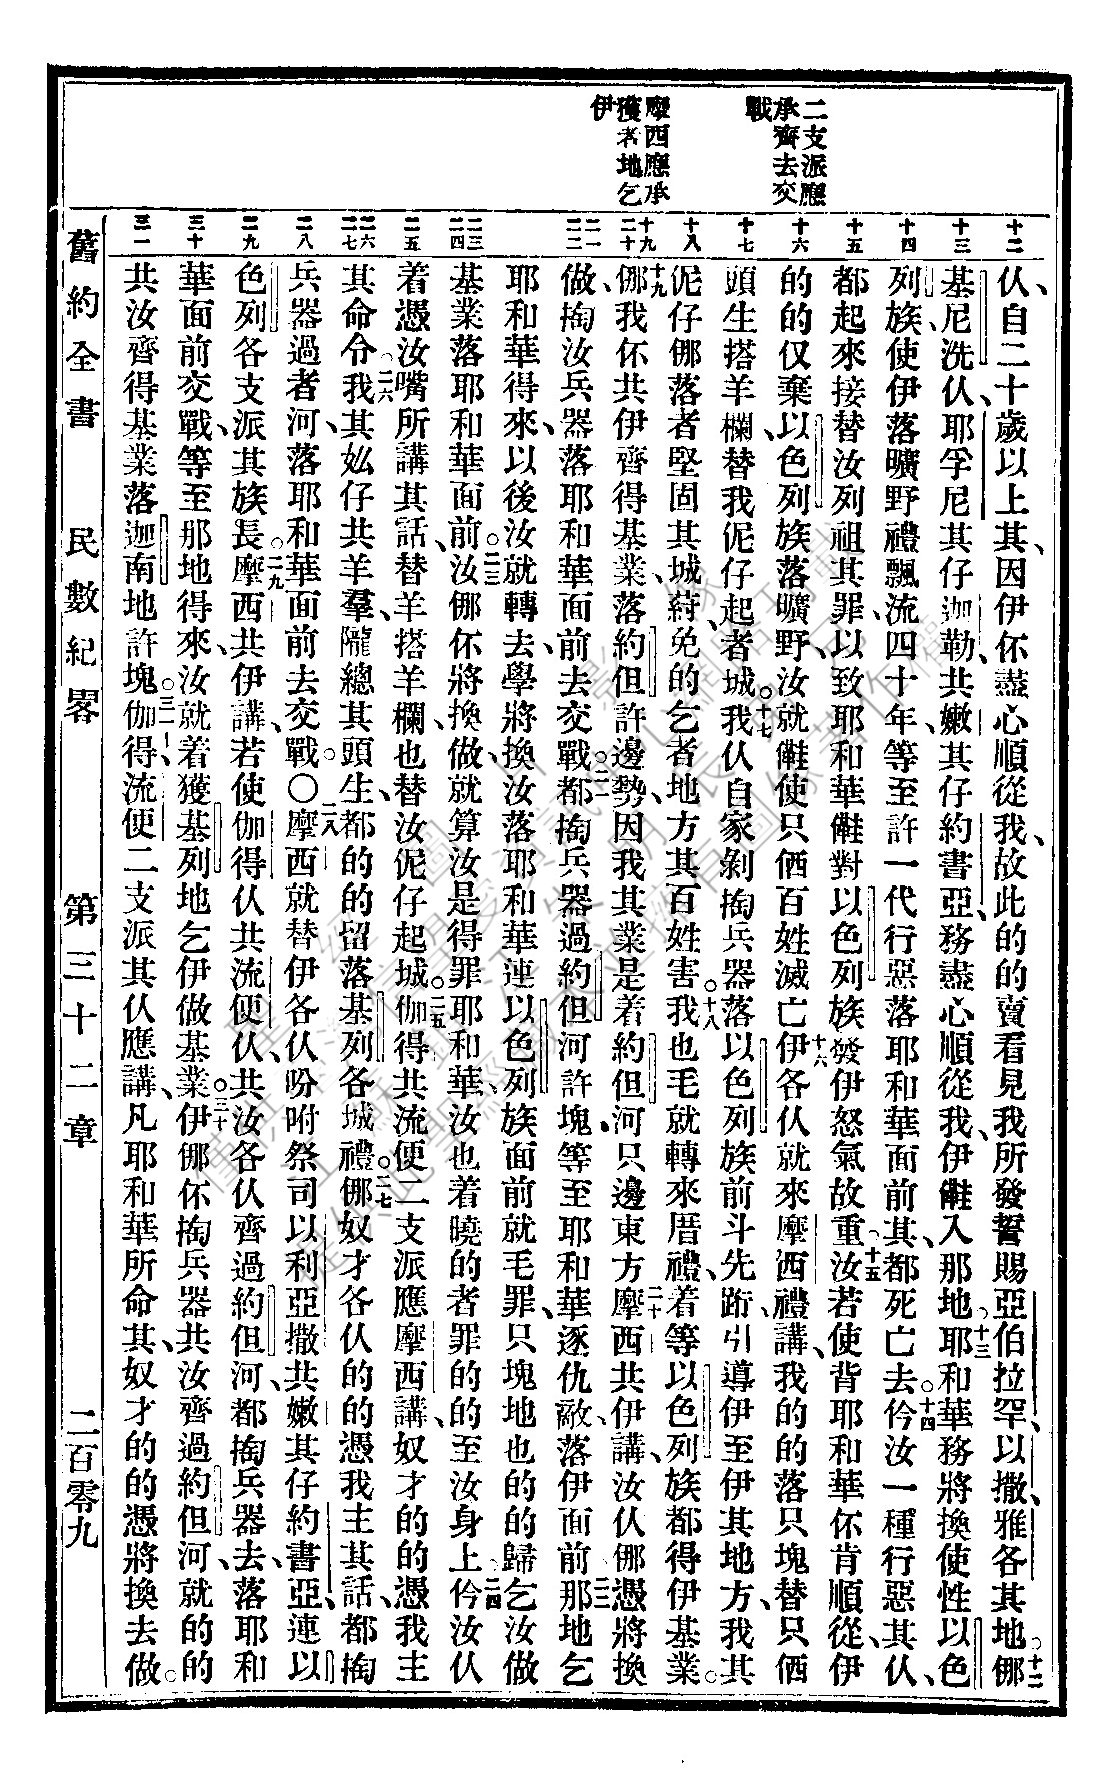 二支派應
承齊去交
戰
摩西應承
獲者地乞
伊
十二 十三 十四 十五 十六 十七 十八 十九 二十 二一 二二 二三 二四 二五 二六 二七 二八 二九 三十 三一
仈、自二十歲以上其、因伊伓盡心順從我、故此的的賣看見我所發誓賜亞伯拉罕、以撒、雅各其地。十二哪
基尼洗仈、耶孚尼其仔迦勒、共嫩其仔約書亞、務盡心順從我、伊𣍐入那地。十三耶和華務將換使性以色
列族、使伊落曠野禮飄流四十年、等至許一代行惡落耶和華面前其、都死亡去。十四仱汝一種行惡其仈、
都起來接替汝列祖其罪、以致耶和華𣍐對以色列族發伊怒氣故重。十五汝若使背耶和華伓肯順從、伊
的的仅棄以色列族落曠野、汝就𣍐使只個百姓滅亡。十六伊各仈就來摩西禮講、我的的落只塊替只個
頭生搭羊欄、替我伲仔起者城。十七我仈自家剝掏兵器、落以色列族前斗先跨、引導伊至伊其地方、我其
伲仔哪落者堅固其城、䔟免的乞者地方其百姓害。十八我也毛就轉來厝禮、着等以色列族都得伊基業。
十九哪我伓共伊齊得基業、落約但許邊勢、因我其業是着約但河只邊東方。二十摩西共伊講、汝仈哪憑將換
做、掏汝兵器、落耶和華面前去交戰。二一都掏兵器過約但河許塊、等至耶和華逐仇敵、落伊面前、二二那地乞
耶和華得來、以後汝就轉去學將換、汝落耶和華連以色列族面前就毛罪、只塊地也的的歸乞汝做
基業落耶和華面前。二三汝哪伓將換做、就算汝是得罪耶和華、汝也着曉的者罪的的至汝身上。二四仱汝仈
着憑汝嘴所講其話、替羊搭羊欄、也替汝伲仔起城。二五伽得共流便二支派應摩西講、奴才的的憑我主
其命令。二六我其妐仔共羊羣、隴總其頭生、都的的留落基列各城禮。二七哪奴才各仈的的憑我主其話、都掏
兵器過者河、落耶和華面前去交戰。○二八摩西就替伊各仈吩咐祭司以利亞撒共嫩其仔約書亞、連以
色列各支派其族長。二九摩西共伊講、若使伽得仈共流便仈、共汝各仈齊過約但河、都掏兵器、去落耶和
華面前交戰、等至那地得來、汝就着獲基列地乞伊做基業。三十伊哪伓掏兵器共汝齊過約但河、就的的
共汝齊得基業落迦南地許塊。三一伽得、流便二支派其仈應講、凡耶和華所命其、奴才的的憑將換去做。
舊約全書 民數紀畧 第三十二章 二百零九